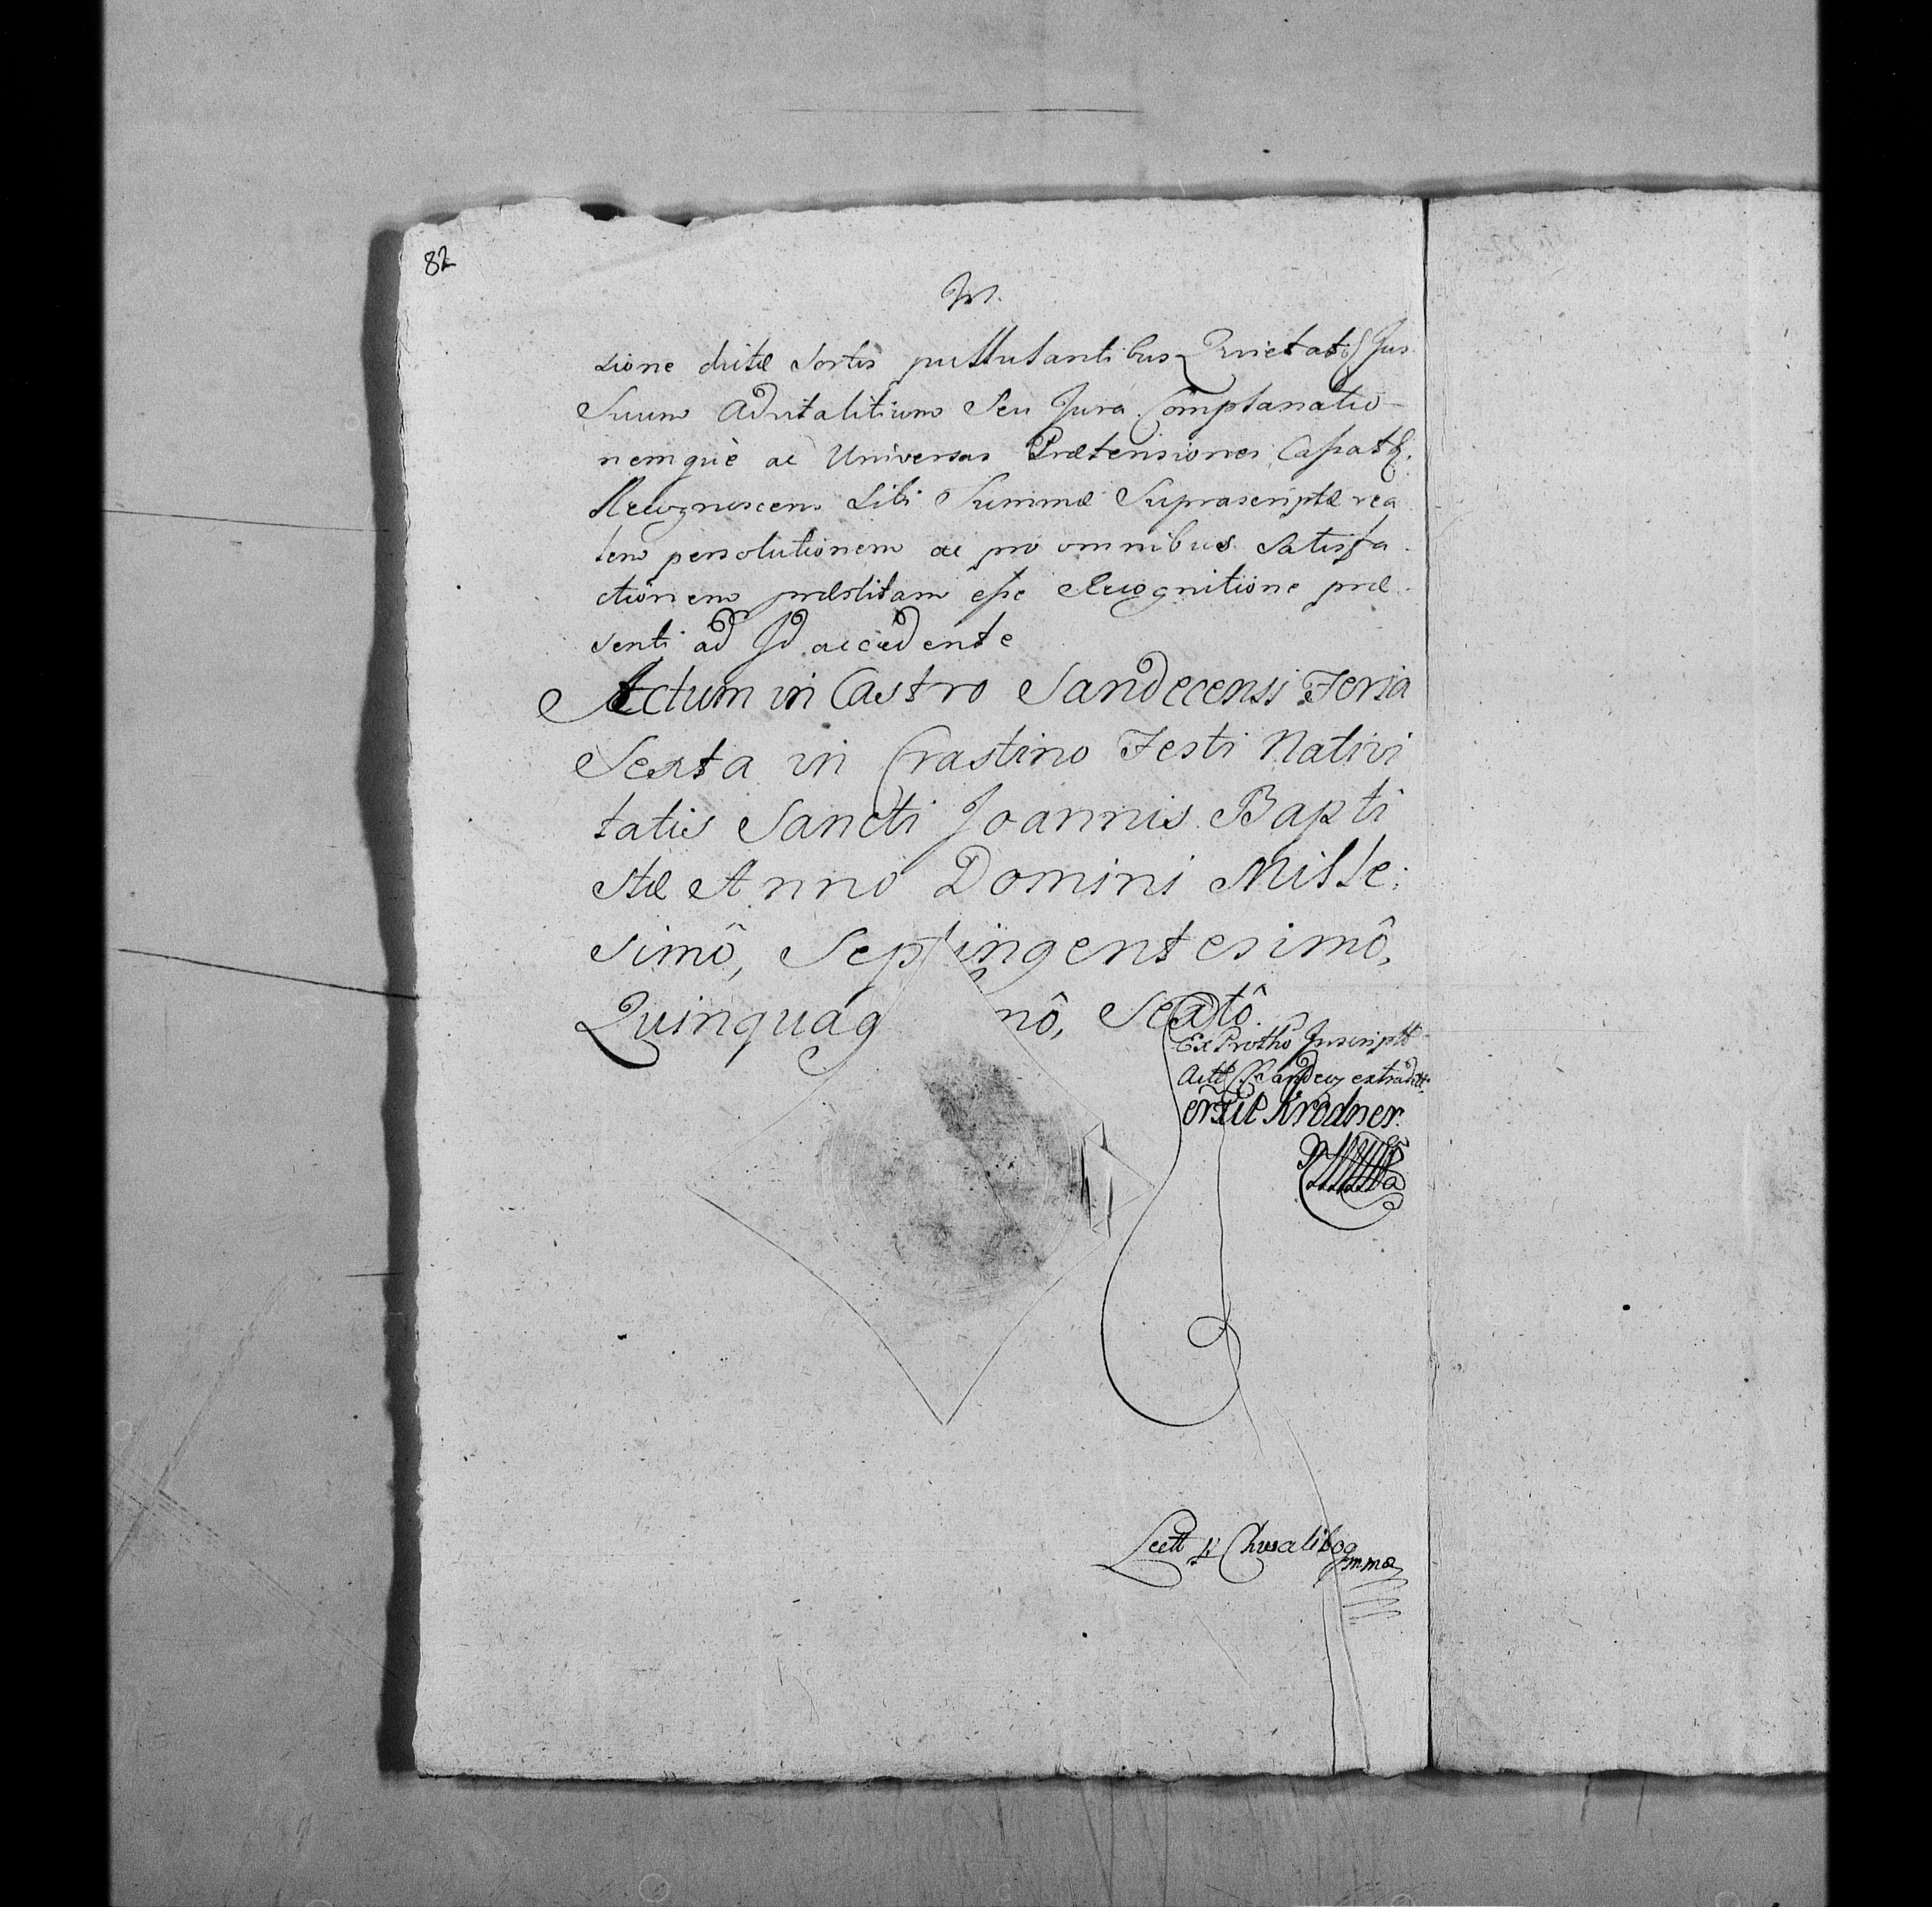 82
In.
sione dictæ Sortis pullulantibus Quietat q Jus
Suum Advitalitium Seu Jura Complanatio-
nemquè ac Universas Prætensiones Cassat q.
Recognoscens Sibi Summæ Suprascriptæ rea
lem persolutionem ac pro omnibus Satisfa.
ctionem præstitam esse Recognitione præ.
senti ad Id accedente
Actum in Castro Sandecensi Feria
Sexta in Crastino Festi Nativi
tatis Sancti Joannis Bapti
stæ Anno Domini Mille;
simô, Septingentesimô,
Quinquag nô, Sextô.
Ex Protho Inscriptt
Actt Cstr Sandecz extradtt.
Krodner.
Lectt p Chwalibog
mmœ